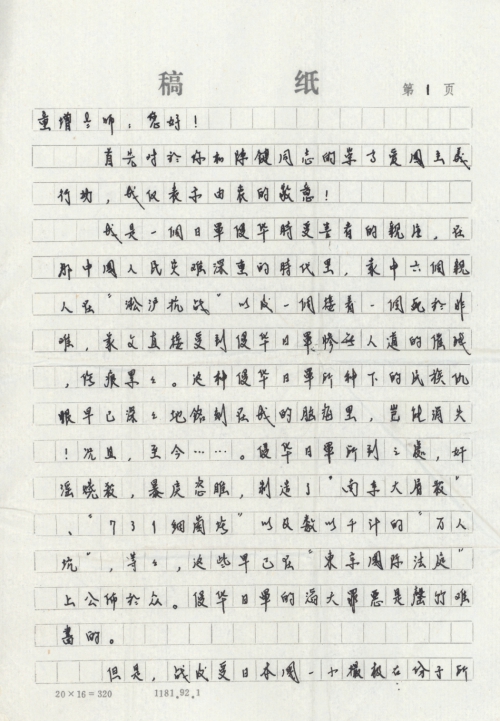 稿 纸
第 1 页
童增老师：您好！
首先对於你和陈健同志的崇高爱国主义
行动，我仅表示由衷的敬意！
我是一個日軍侵华時受害者的親生，在
那中国人民灾难深重的時代里，家中六個親
人在“淞沪抗战”以後一個接着一個死於非
难，家父直接受到侵华日軍惨无人道的催残
，伤痕累々。这种侵华日軍所种下的民族仇
恨早已深々地銘刻在我的脑海里，岂能消失
！况且，至今……。侵华日軍所到之處，奸
淫烧殺，暴戾恣睢，制造了“南京大屠殺”
、“731细菌战”以及数以千计的“万人
坑”，等々，这些早已在“東京国际法庭”
上公佈於众。侵华日軍的滔天罪恶是罄竹难
書的。
但是，战後受日本国一小撮极右份子所
20×16=320 1181.92.1